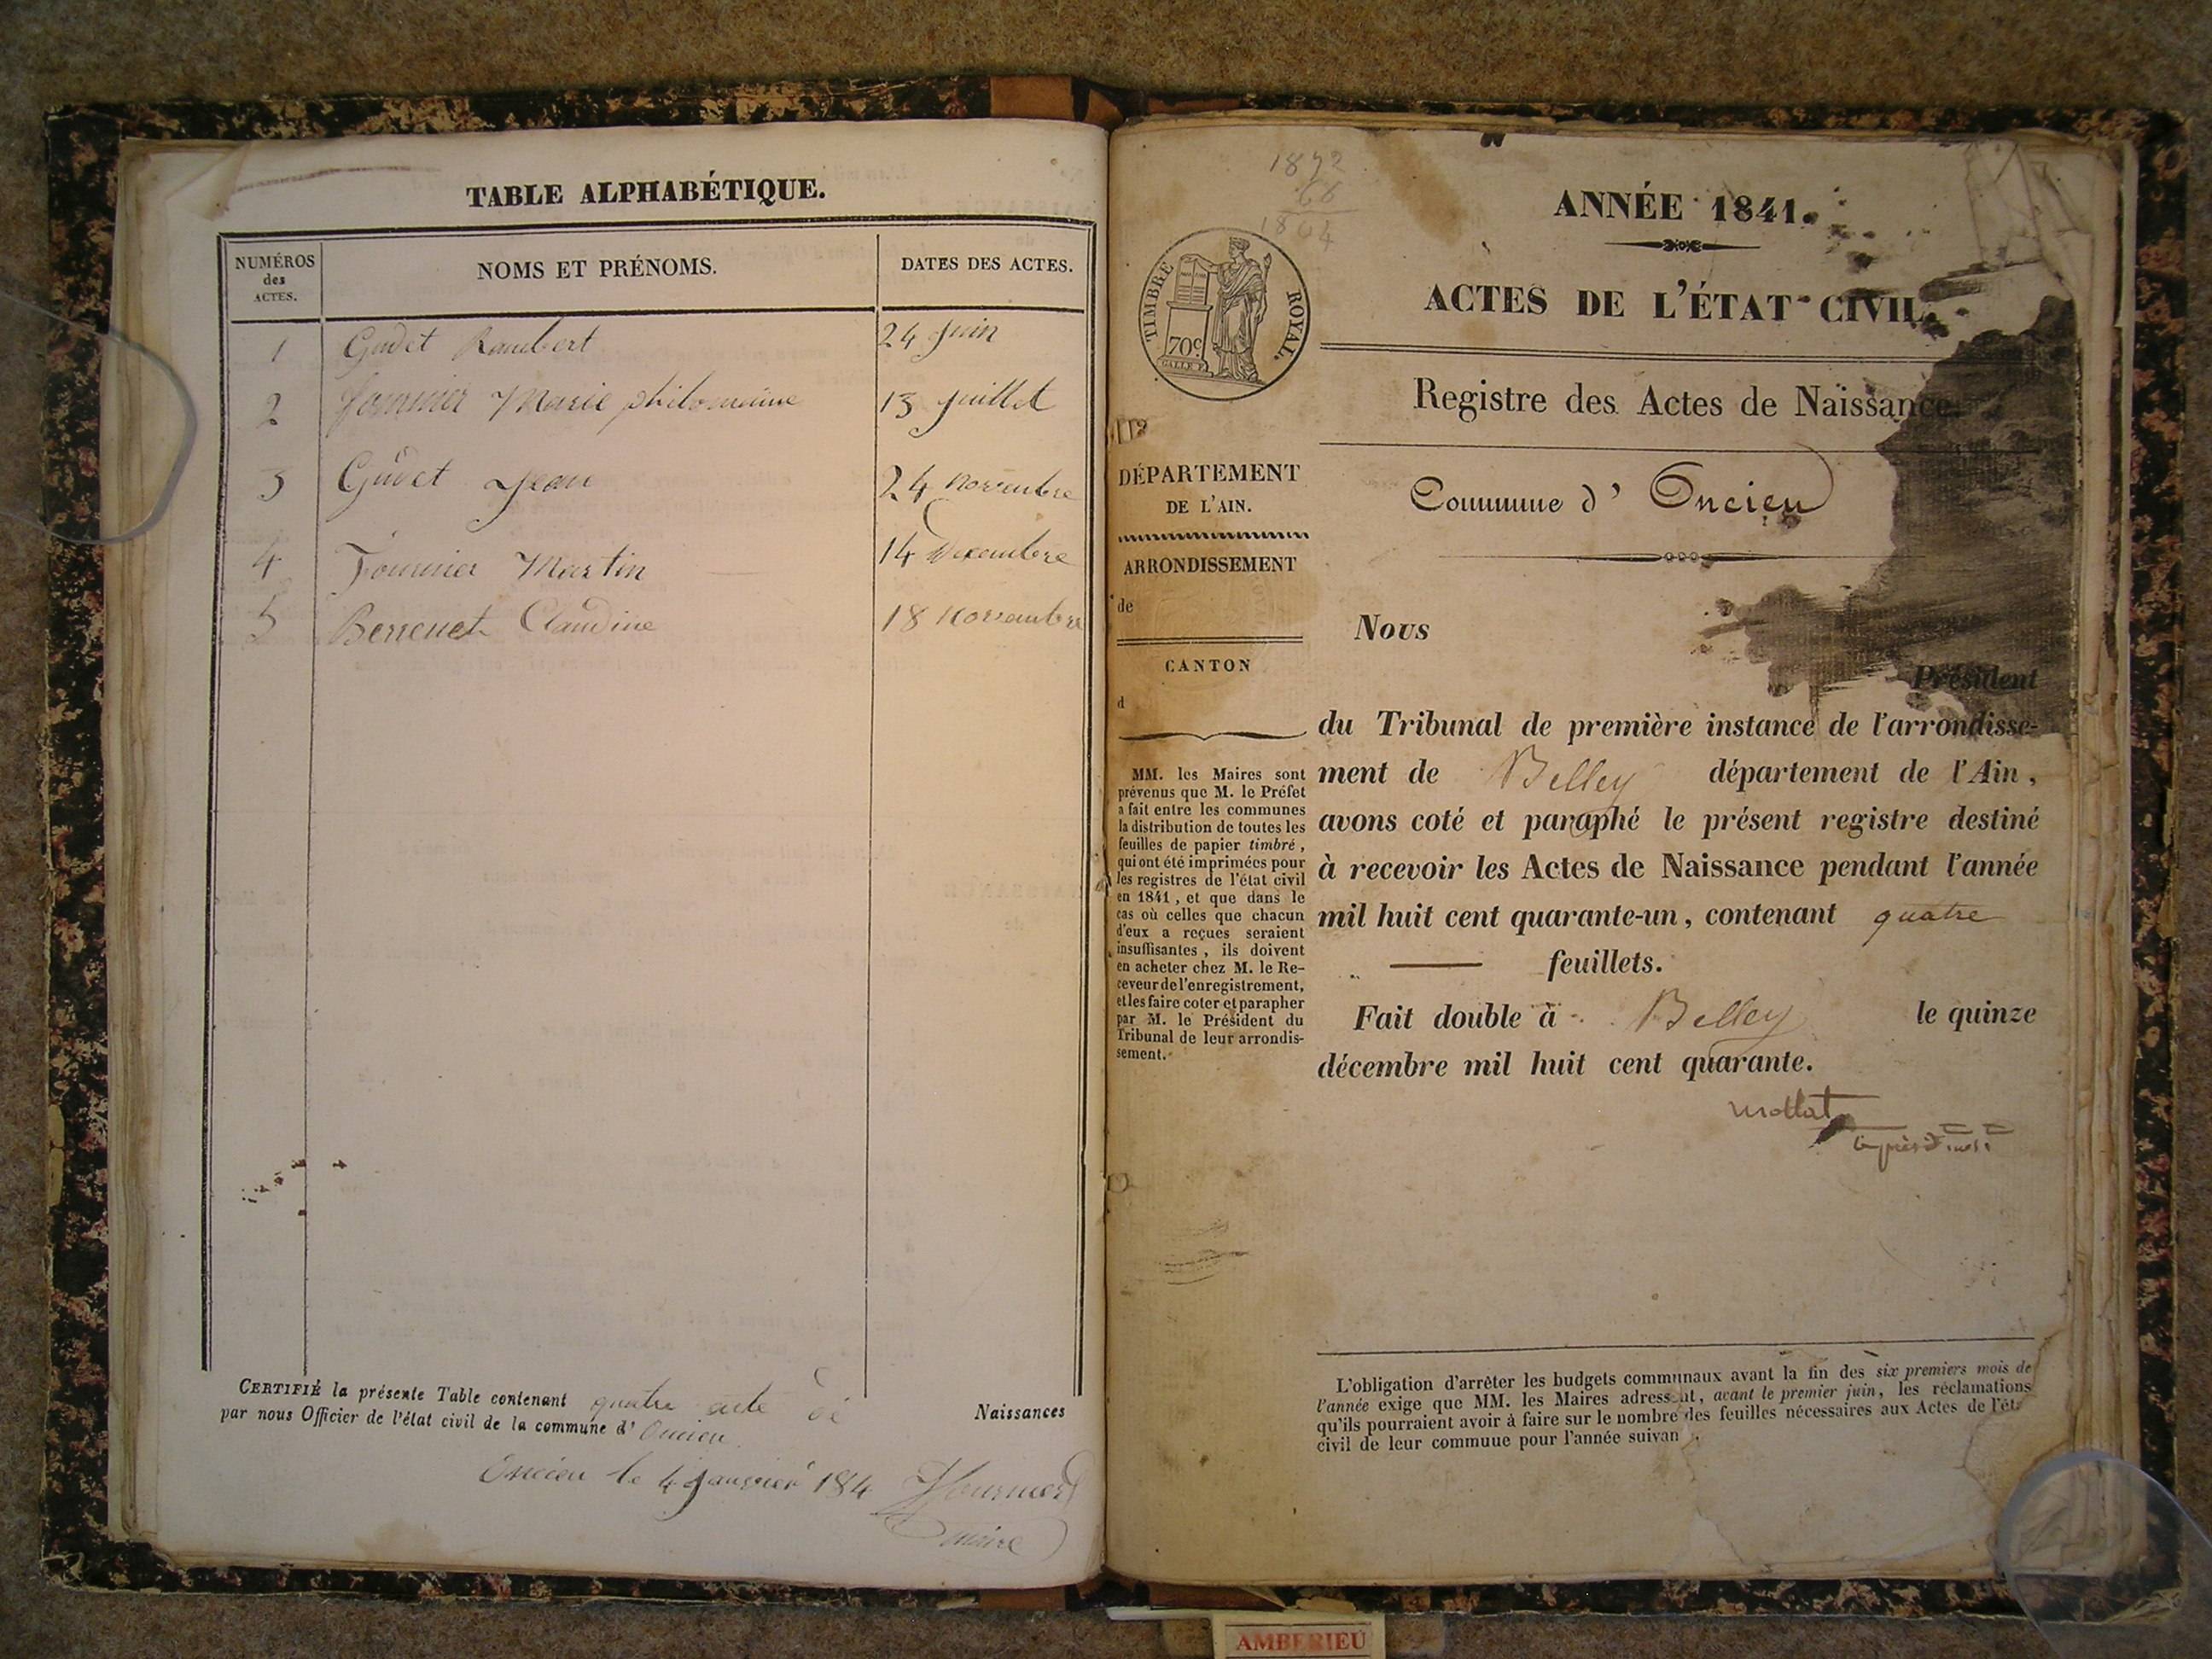 TABLE ALPHABÉTIQUE.
NUMÉROS
des
ACTES.
NOMS ET PRÉNOMS.
DATES DES ACTES.
1 Gudet Rambert 24 juin
2 Marie philomène 13 juillet
3 Gudet Jean 24 novembre
4 Martin 14 Decembre
5 Claudine 18 novembre
CERTIFIÉ la présente Table contenant quatre acte de Naissances
par nous Officier de l'état civil de la commune d' Oncieu
Oncieu le 4 janvier 184
maire
1872
68
1804
TIMBRE ROYAL.
70c
ANNÉE 1841.
ACTES DE L'ÉTAT CIVIL.
Registre des Actes de Naissance.
DÉPARTEMENT
DE L'AIN.
ARRONDISSEMENT
de
CANTON
d
MM. les Maires sont
prévenus que M. le Préfet
a fait entre les communes
la distribution de toutes les
feuilles de papier timbré,
qui ont été imprimées pour
les registres de l'état civil
en 1841, et que dans le
cas où celles que chacun
d'eux a reçues seraient
insuffisantes, ils doivent
en acheter chez M. le Re-
ceveur de l'enregistrement,
et les faire coter et parapher
par M. le Président du
Tribunal de leur arrondis-
sement.
Commune d' Oncieu
Nous
Président
du Tribunal de première instance de l'arrondisse-
ment de Belley département de l'Ain,
avons coté et paraphé le présent registre destiné
à recevoir les Actes de Naissance pendant l'année
mil huit cent quarante-un, contenant quatre
feuillets.
Fait double à Belley le quinze
décembre mil huit cent quarante.
L'obligation d'arrêter les budgets communaux avant la fin des six premiers mois de
l'année exige que MM. les Maires adressent, avant le premier juin, les réclamations
qu'ils pourraient avoir à faire sur le nombre des feuilles nécessaires aux Actes de l'ét
civil de leur commune pour l'année suivan
AMBERIEU